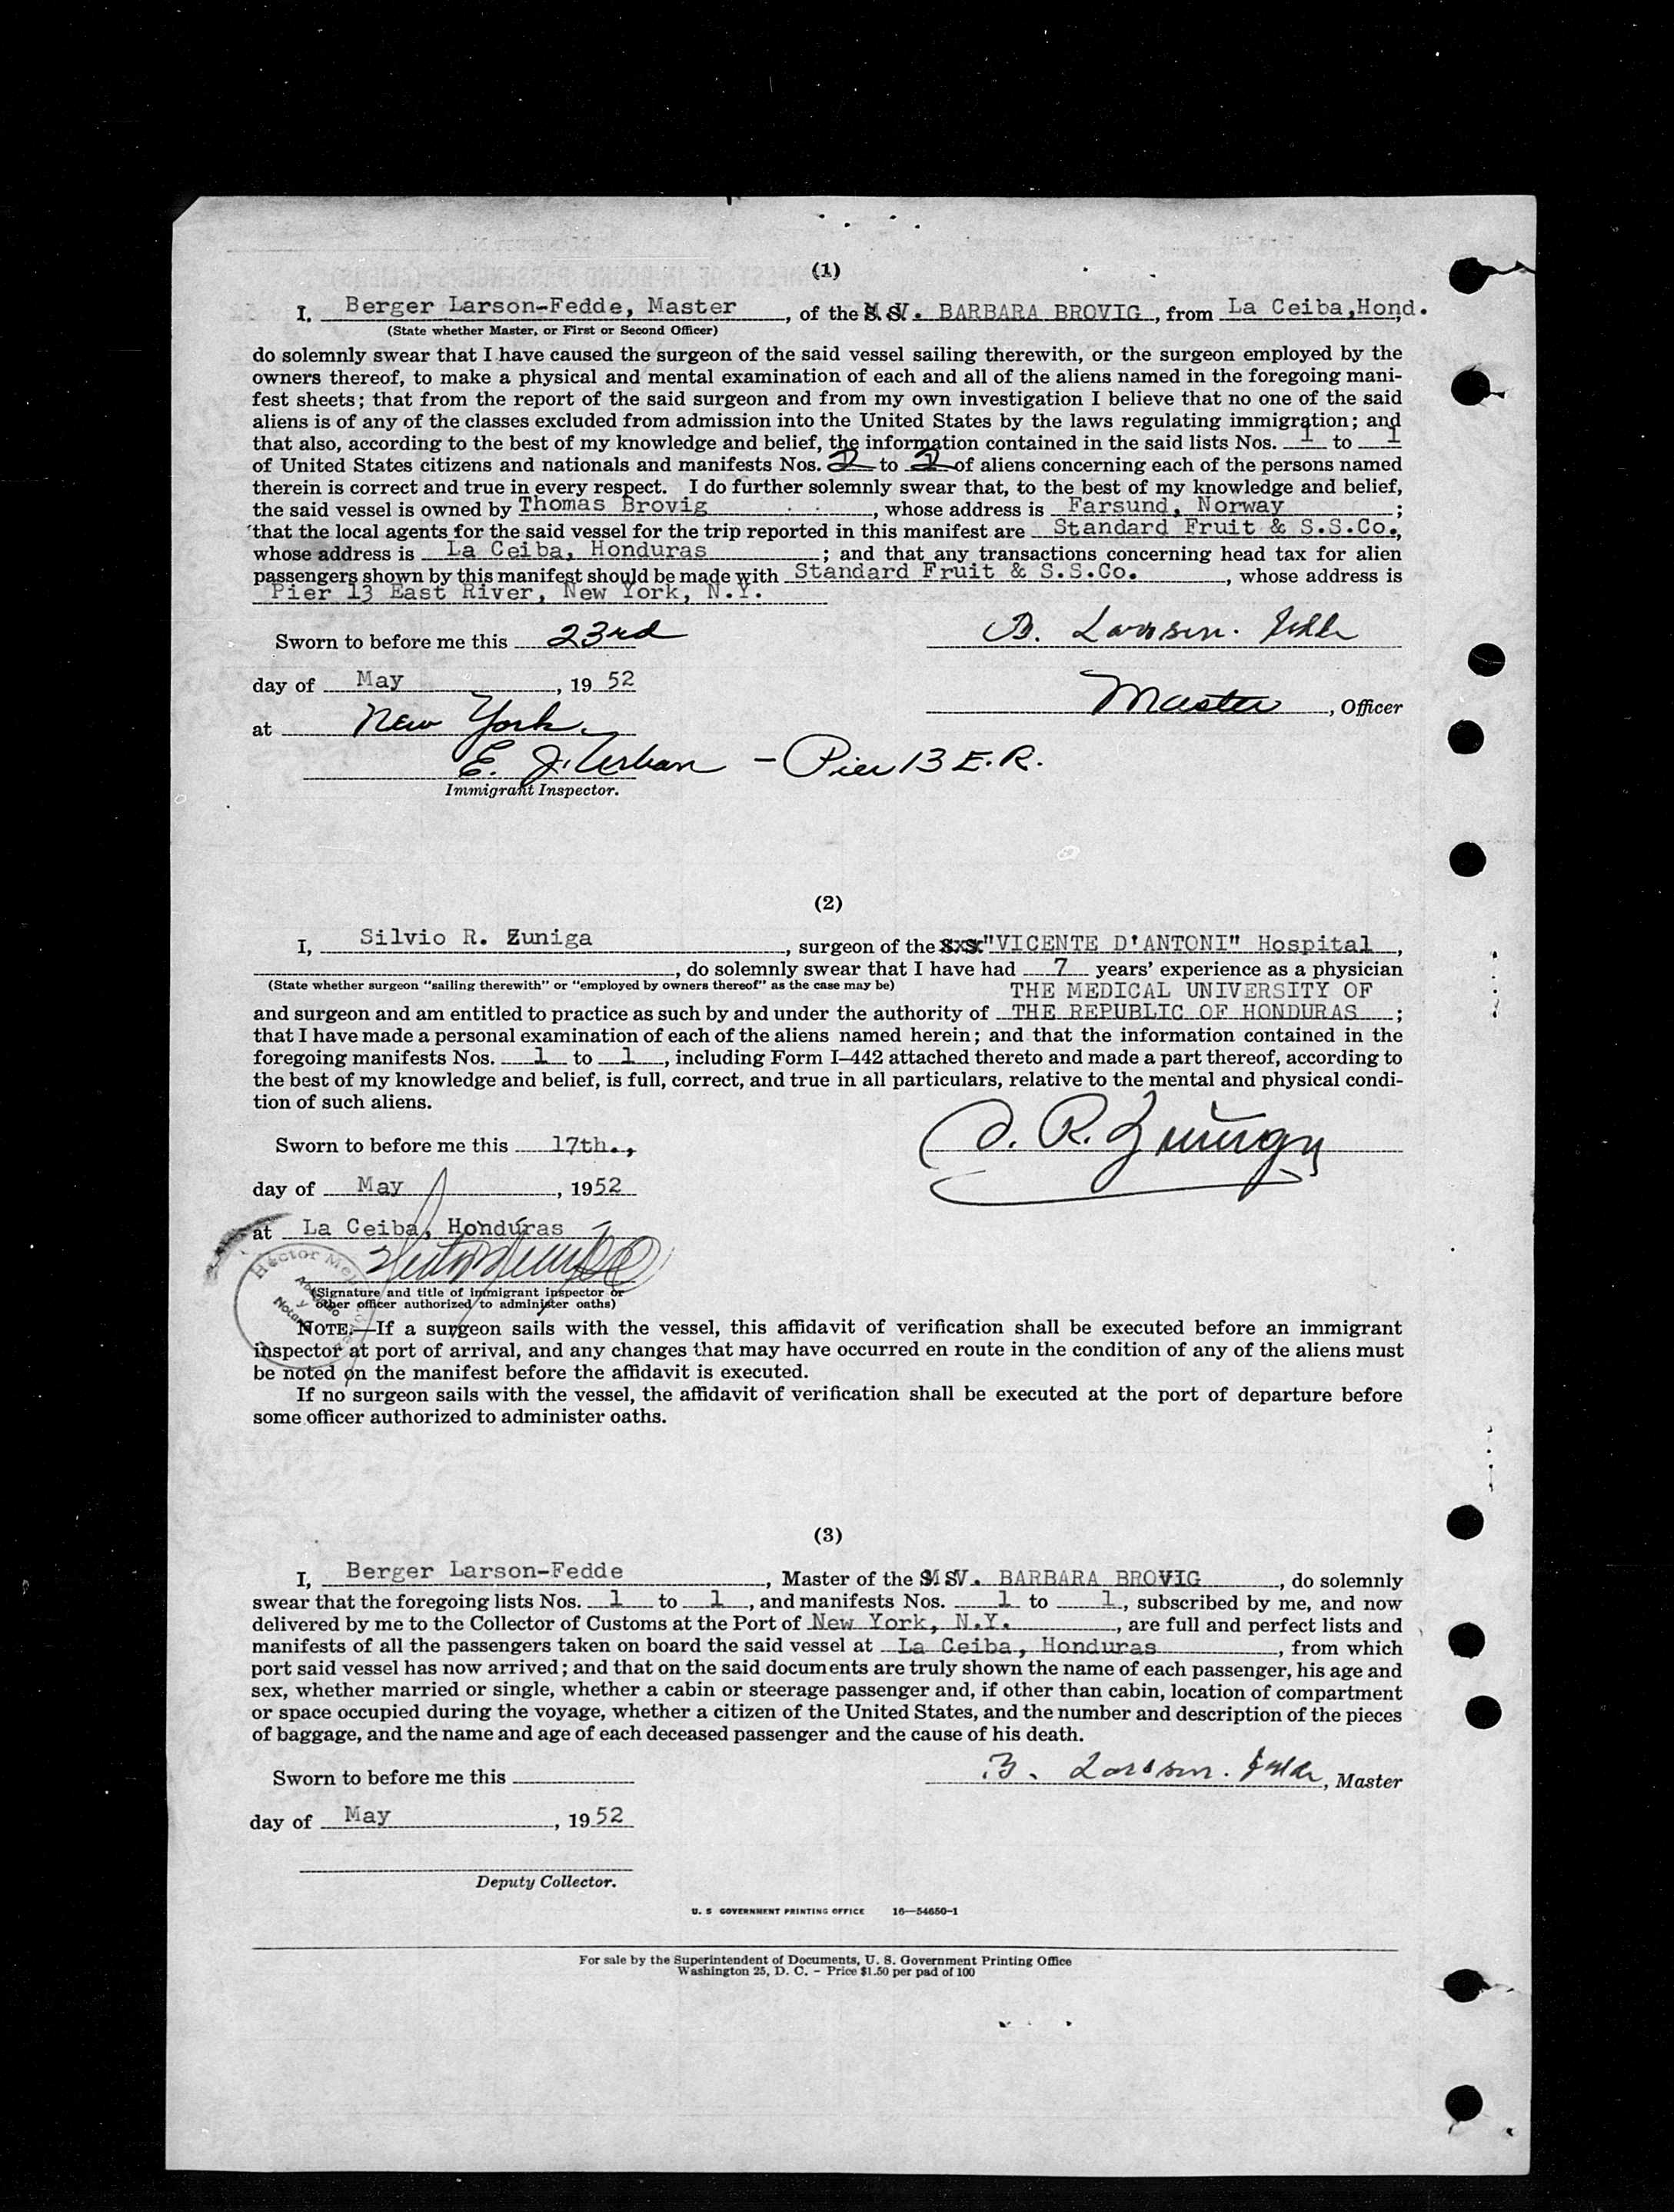 (1)
I, Berger Larson-Fedde, Master, of the M.V. BARBARA BROVIG, from La Ceiba, Hond.
(State whether Master, or First or Second Officer)
do solemnly swear that I have caused the surgeon of the said vessel sailing therewith, or the surgeon employed by the
owners thereof, to make a physical and mental examination of each and all of the aliens named in the foregoing mani-
fest sheets; that from the report of the said surgeon and from my own investigation I believe that no one of the said
aliens is of any of the classes excluded from admission into the United States by the laws regulating immigration; and
that also, according to the best of my knowledge and belief, the information contained in the said lists Nos. 1 to 1
of United States citizens and nationals and manifests Nos. to of aliens concerning each of the persons named
therein is correct and true in every respect. I do further solemnly swear that, to the best of my knowledge and belief,
the said vessel is owned by Thomas Brovig, whose address is Farsund, Norway;
that the local agents for the said vessel for the trip reported in this manifest are Standard Fruit & S.S.Co.,
whose address is La Ceiba, Honduras; and that any transactions concerning head tax for alien
passengers shown by this manifest should be made with Standard Fruit & S.S.Co., whose address is
Pier 13 East River, New York, N.Y.
Sworn to before me this 23rd
B. Larssen. Fedde
day of May, 1952
Master, Officer
at New York.
E. J. Urban – Pier 13 E.R.
Immigrant Inspector.
(2)
I, Silvio R. Zuniga, surgeon of the "VICENTE D'ANTONI" Hospital,
, do solemnly swear that I have had 7 years' experience as a physician
(State whether surgeon "sailing therewith" or "employed by owners thereof" as the case may be)
THE MEDICAL UNIVERSITY OF
and surgeon and am entitled to practice as such by and under the authority of THE REPUBLIC OF HONDURAS;
that I have made a personal examination of each of the aliens named herein; and that the information contained in the
foregoing manifests Nos. 1 to 1, including Form I-442 attached thereto and made a part thereof, according to
the best of my knowledge and belief, is full, correct, and true in all particulars, relative to the mental and physical condi-
tion of such aliens.
Sworn to before me this 17th.,
S. R. Zuniga
day of May, 1952
at La Ceiba, Honduras
Héctor
Abogado
y
(Signature and title of immigrant inspector or
other officer authorized to administer oaths)
NOTE.—If a surgeon sails with the vessel, this affidavit of verification shall be executed before an immigrant
inspector at port of arrival, and any changes that may have occurred en route in the condition of any of the aliens must
be noted on the manifest before the affidavit is executed.
If no surgeon sails with the vessel, the affidavit of verification shall be executed at the port of departure before
some officer authorized to administer oaths.
(3)
I, Berger Larson-Fedde, Master of the M.V. BARBARA BROVIG, do solemnly
swear that the foregoing lists Nos. 1 to 1, and manifests Nos. 1 to 1, subscribed by me, and now
delivered by me to the Collector of Customs at the Port of New York, N.Y., are full and perfect lists and
manifests of all the passengers taken on board the said vessel at La Ceiba, Honduras, from which
port said vessel has now arrived; and that on the said documents are truly shown the name of each passenger, his age and
sex, whether married or single, whether a cabin or steerage passenger and, if other than cabin, location of compartment
or space occupied during the voyage, whether a citizen of the United States, and the number and description of the pieces
of baggage, and the name and age of each deceased passenger and the cause of his death.
Sworn to before me this
B. Larssen. Fedde, Master
day of May, 1952
Deputy Collector.
U. S GOVERNMENT PRINTING OFFICE 16—54650-1
For sale by the Superintendent of Documents, U. S. Government Printing Office
Washington 25, D. C. - Price $1.50 per pad of 100